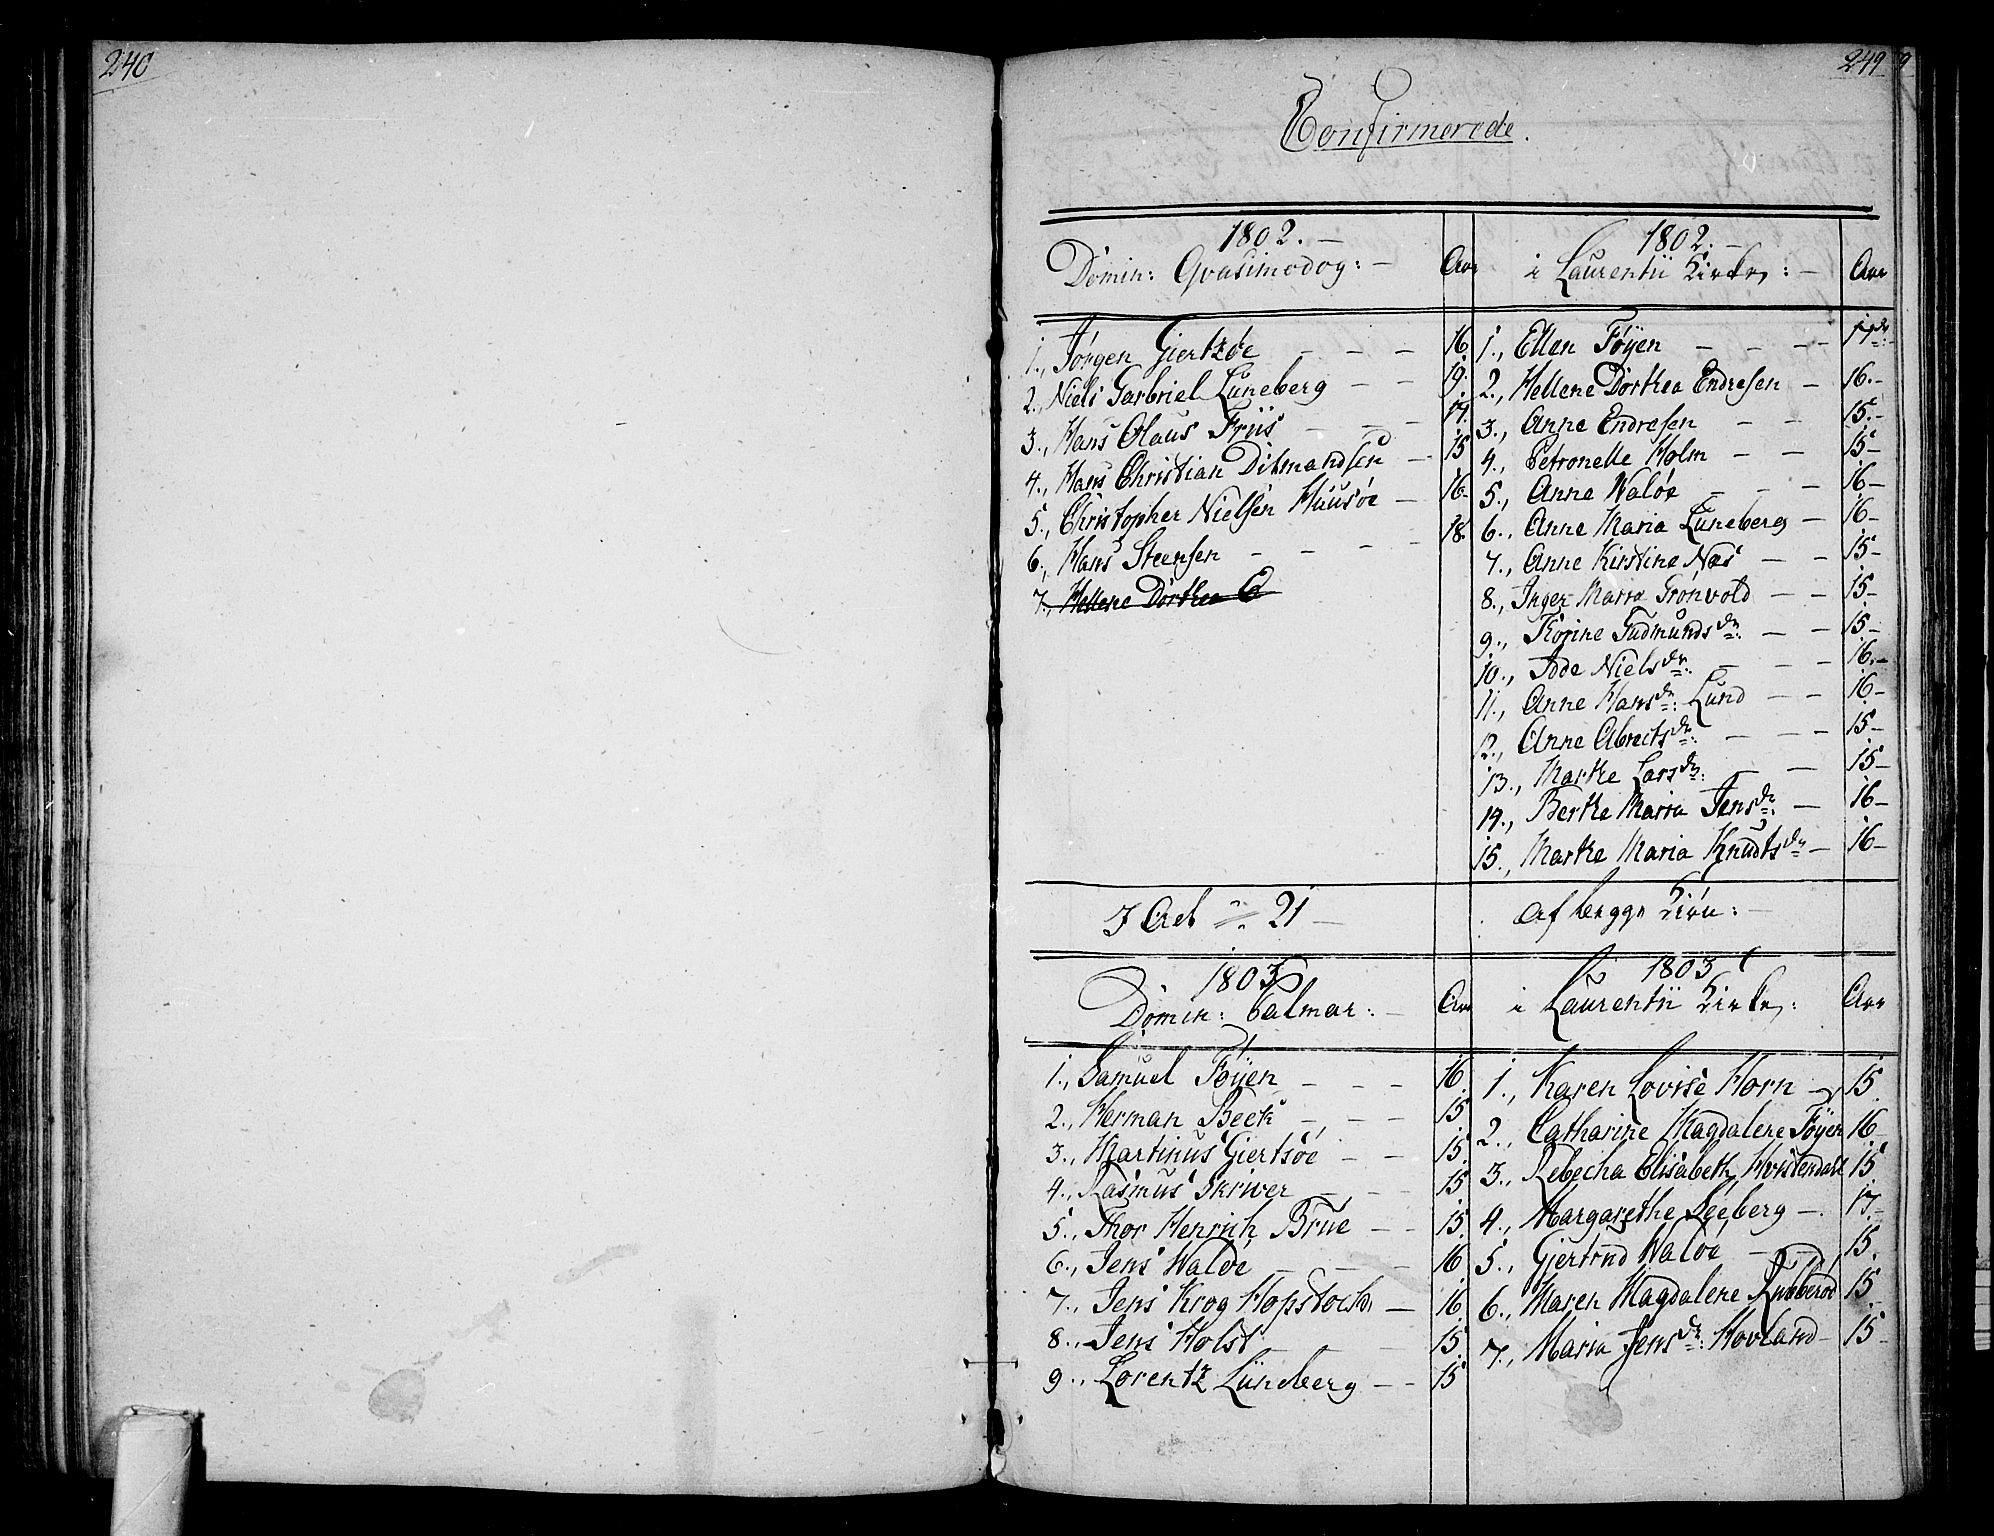 240
249
9
Confirmerede.
1802. –
Domin: Qvasimodog: – Aar
1., Jørgen Giertzøe – – – 16
2., Niels Garbriel Lüneberg – – 19.
3., Hans Olaus Friis – – – 17.
4., Hans Christian Ditmandsen – 15
5., Christopher Nielsen Huusøe – 16.
6., Hans Steensen – – – – 18.
7., Hellene Dorthea E
1802. –
i Laurentii Kirke: – Aar
1., Ellen Føyen – – – – 17
2., Hellene Dorthea Endresen – 16. –
3., Anne Endresen – – 15. –
4., Petronelle Holm – – 15 –
5., Anne Waløe – – – 16 –
6., Anne Maria Lüneberg – 16 –
7., Anne Kirstine Næs – – 15 –
8., Inger Maria Grønvold – – 15 –
9., Torine Gudmunds dr: – – 15 –
10., Idde Niels dr: – – – 16. –
11., Anne Hans dr: Lund – – 16 –
12., Anne Abrects dr: – – – 15 –
13., Marthe Lars dr: – 15 –
14., Berthe Maria Jens dr: – 16 –
15., Marthe Maria Knudts dr – 16 –
I Alt 21 –
Af begge Kiøn: –
1803
Domin: Palmar: – Aar
1., Samuel Føyen – – – 16
2., Herman Beck – – – 15
3., Martinus Giertsøe – – 15
4., Rasmus Skriver – – 15
5., Thor Henrich Brue – – 15
6., Jens Waløe – – – 16
7., Jens Krog Hopstock – 16
8., Jens Holst – 15
9., Lorentz Lüneberg – – 15
1803
i Laurentii Kirke: Aar
1., Karen Lovise Horn – 15.
2., Catharine Magdalene Føyen 16
3., Rebecha Elisabeth Hvistendahl 15
4., Margarethe Seeberg – 17 –
5., Gjertrud Waløe – – 15.
6., Maren Magdalene 15
7., Maria Jens dr: Hovland – 15 –